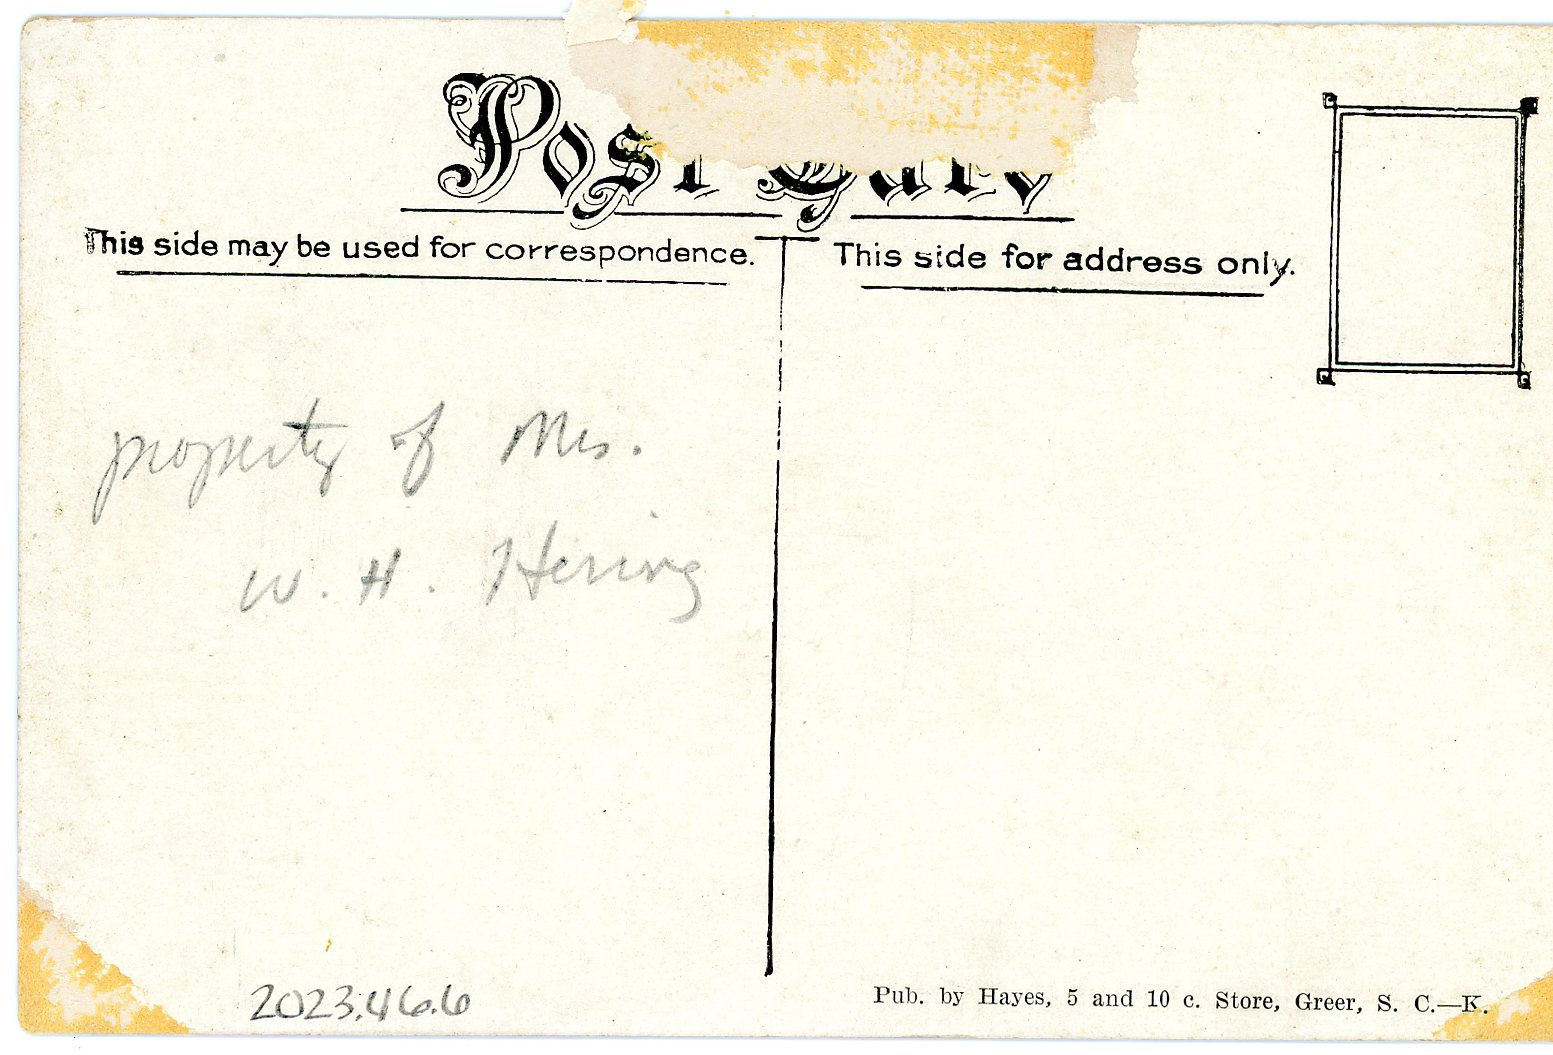 Post Card
This side may be used for correspondence.
This side for address only.
property of Mrs.
W. H. Hering
2023.46.6
Pub. by Hayes, 5 and 10 c. Store, Greer, S. C.—K.